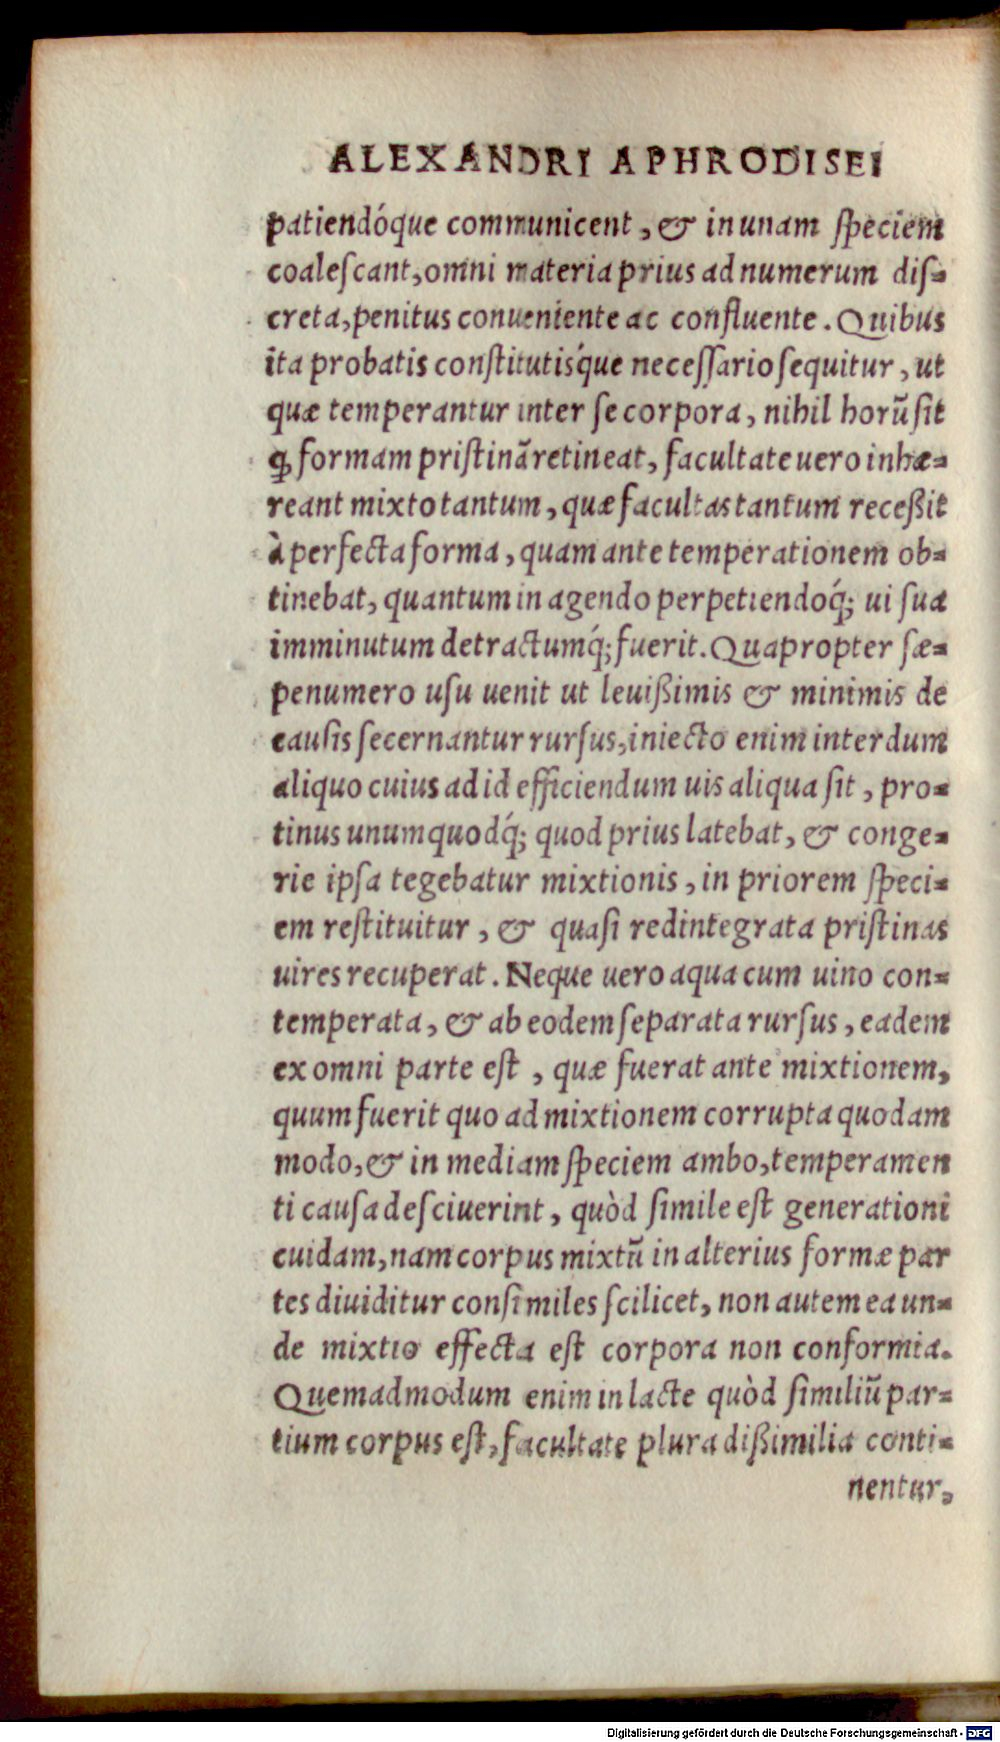 ALEXANDRI APHRODISEI
patiendóque communicent, & in unam ſpeciem
coaleſcant, omni materia prius ad numerum diſ-
creta, penitus conueniente ac confluente. Quibus
ita probatis conſtitutiſq́ue neceſſario ſequitur, ut
quæ temperantur inter ſe corpora, nihil horũ ſit
ꝙ formam priſtinã retineat, facultate uero inhæ-
reant mixto tantum, quæ facultas tantum receßit
à perfecta forma, quam ante temperationem ob-
tinebat, quantum in agendo perpetiendoq́; ui ſua
imminutum detractumq́; fuerit. Quapropter ſæ-
penumero uſu uenit ut leuißimis & minimis de
cauſis ſecernantur rurſus, iniecto enim interdum
aliquo cuius ad id efficiendum uis aliqua ſit, pro-
tinus unumquodq́; quod prius latebat, & conge-
rie ipſa tegebatur mixtionis, in priorem ſpeci-
em reſtituitur, & quaſi redintegrata priſtinas
uires recuperat. Neque uero aqua cum uino con-
temperata, & ab eodem ſeparata rurſus, eadem
ex omni parte eſt, quæ fuerat ante mixtionem,
quum fuerit quo ad mixtionem corrupta quodam
modo, & in mediam ſpeciem ambo, temperamen
ti cauſa deſciuerint, quòd ſimile eſt generationi
cuidam, nam corpus mixtũ in alterius formæ par
tes diuiditur conſimiles ſcilicet, non autem ea un-
de mixtio effecta eſt corpora non conformia.
Quemadmodum enim in lacte quòd ſimiliũ par-
tium corpus eſt, facultate plura dißimilia conti-
nentur,
Digitalisierung gefördert durch die Deutsche Forschungsgemeinschaft - DFG